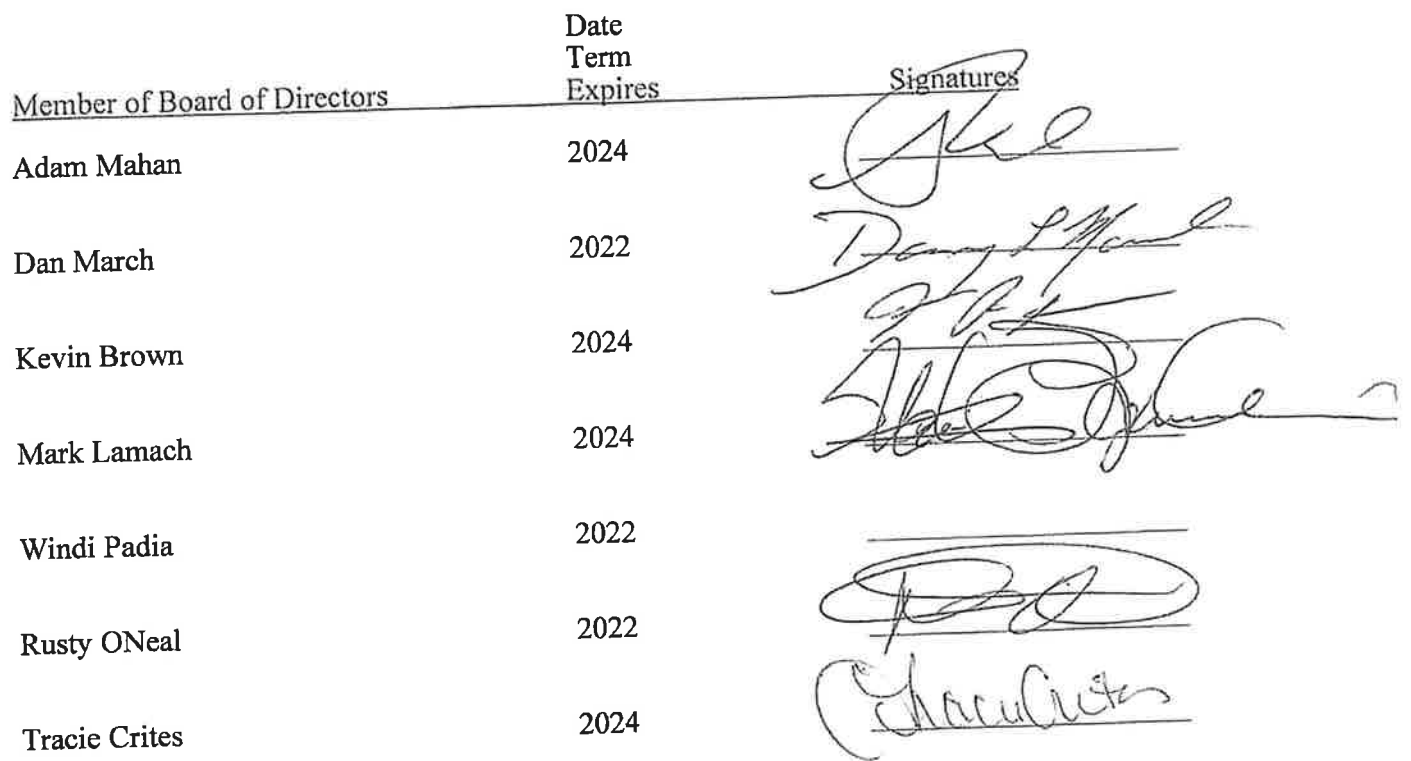 Date
Term
Member of Board of Directors Expires Signatures
Adam Mahan 2024
Dan March 2022 Danny L March
Kevin Brown 2024
Mark Lamach 2024
Windi Padia 2022
Rusty ONeal 2022
Tracie Crites 2024 Tracie Crites